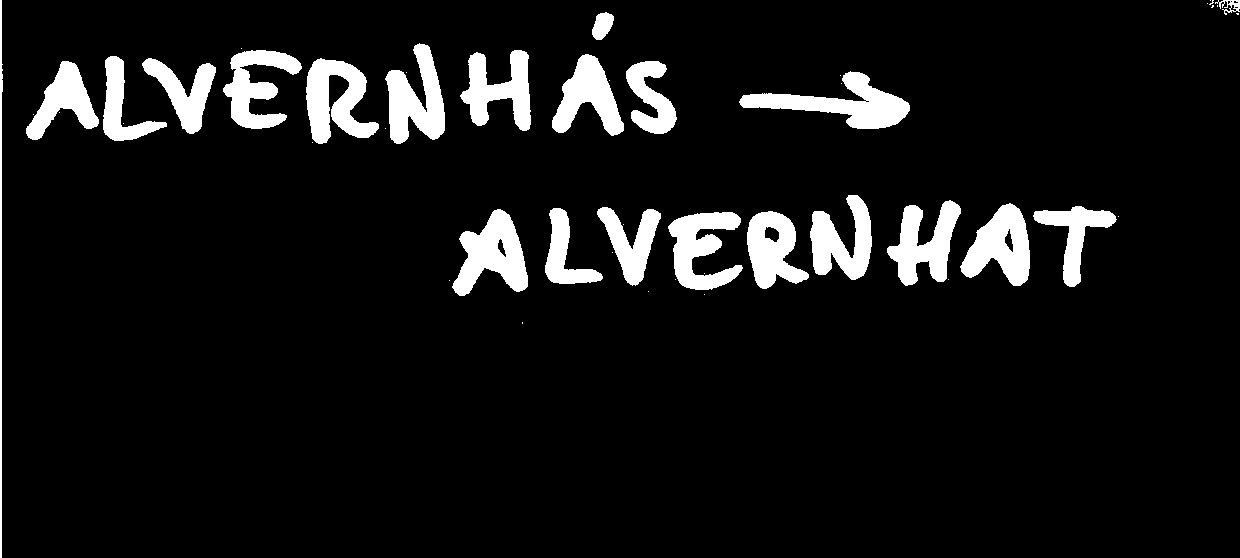 ALVERNHÁS →
ALVERNHAT